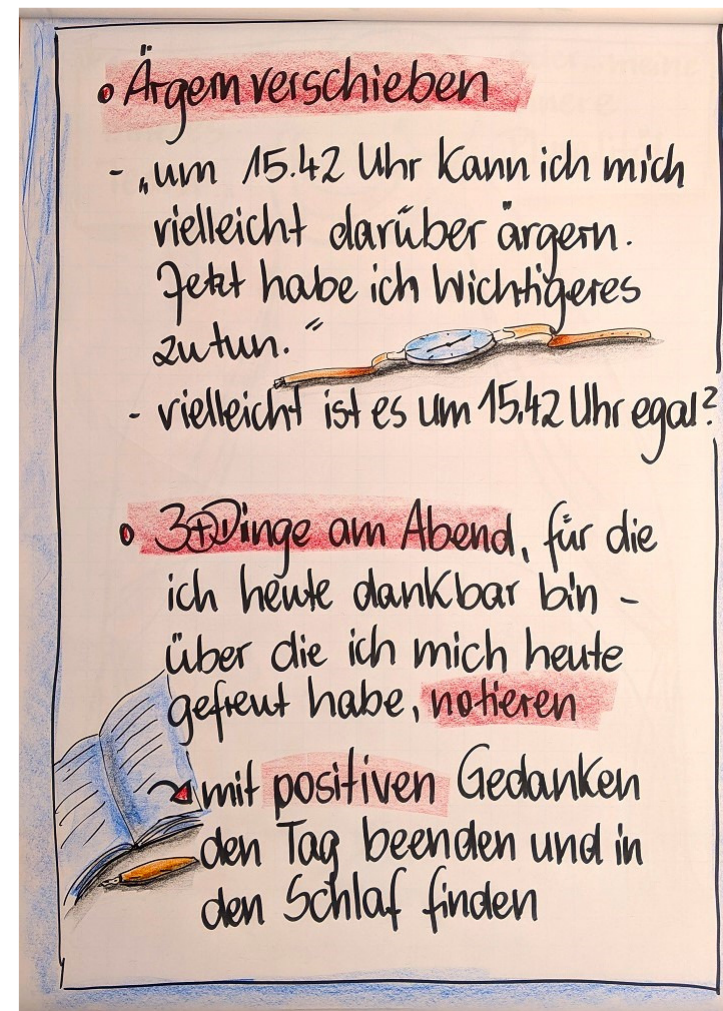 • Ärgern verschieben
- „um 15.42 Uhr kann ich mich
vielleicht darüber ärgern.
Jetzt habe ich Wichtigeres
zu tun."
- vielleicht ist es um 15.42 Uhr egal?
• 3⊕Dinge am Abend, für die
ich heute dankbar bin -
über die ich mich heute
gefreut habe, notieren
mit positiven Gedanken
den Tag beenden und in
den Schlaf finden